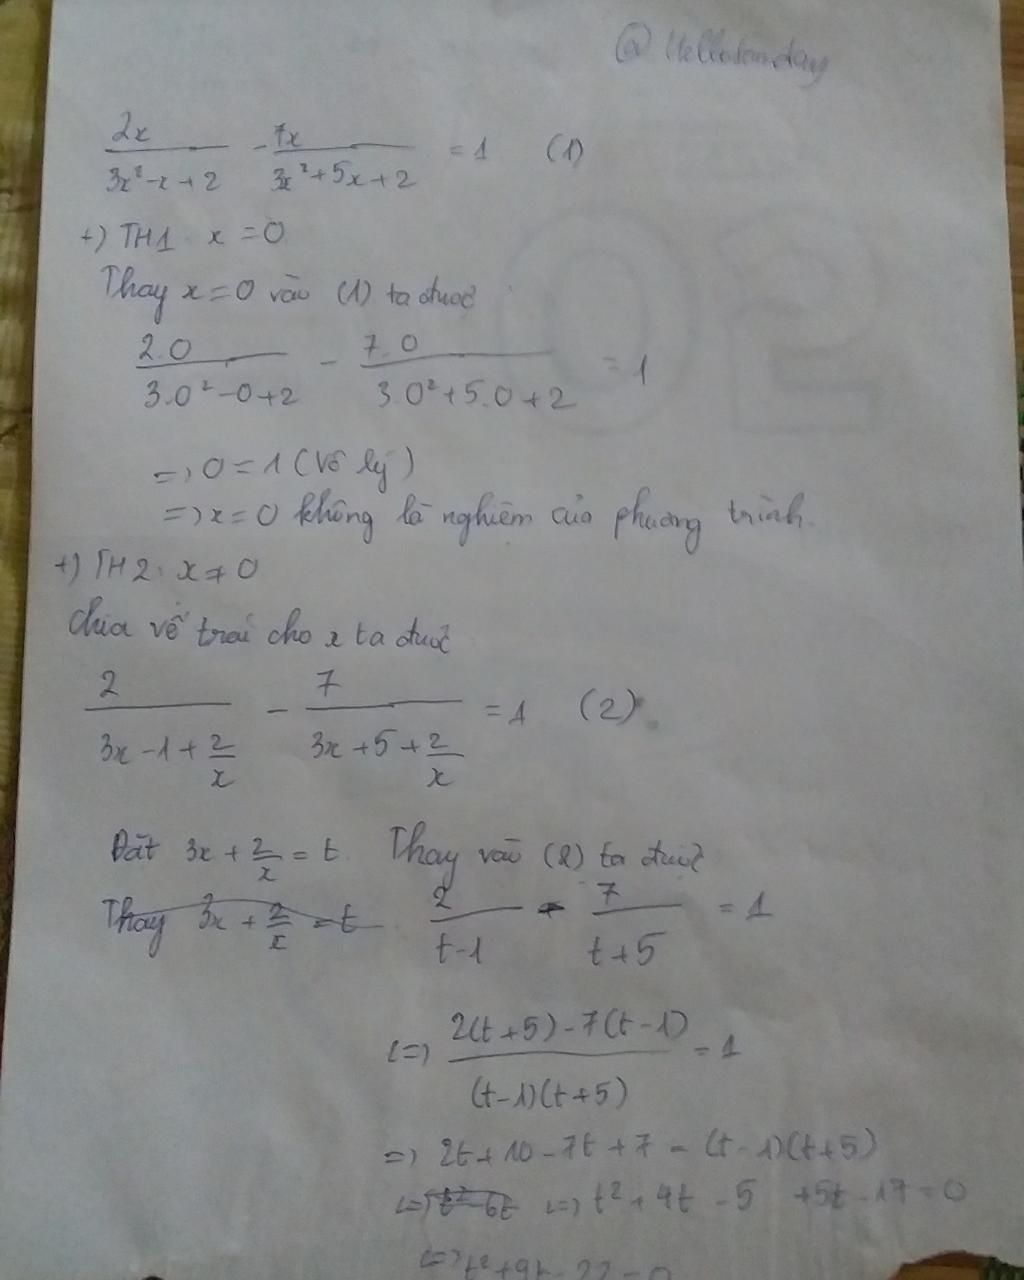 @ Hellosunday
2x/(3x²-x+2) - 7x/(3x²+5x+2) = 1 (1)
+) TH1. x = 0
Thay x = 0 vào (1) ta được
2.0/(3.0²-0+2) - 7.0/(3.0²+5.0+2) = 1
=> 0 = 1 (Vô lý)
=> x = 0 không là nghiệm của phương trình.
+) TH2. x ≠ 0
Chia vế trái cho x ta được
2/(3x-1+2/x) - 7/(3x+5+2/x) = 1 (2)
Đặt 3x + 2/x = t. Thay vào (2) ta được
Thay 3x + 2/x = t 2/(t-1) - 7/(t+5) = 1
<=> (2(t+5)-7(t-1))/((t-1)(t+5)) = 1
=> 2t+10-7t+7 = (t-1)(t+5)
<=> t²-6t <=> t²+4t-5 +5t-17=0
<=> t²+9t-22=0